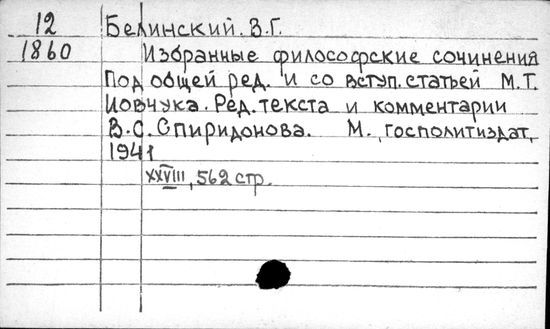 12 Белинский. В.Г.
1860 Избранные философские сочинения
Под общей ред. и со вступ. статьей М.Т.
Иовчука. Ред. текста и комментарии
В.С. Спиридонова. М., госполитиздат,
1941
XXVIII, 562 стр.